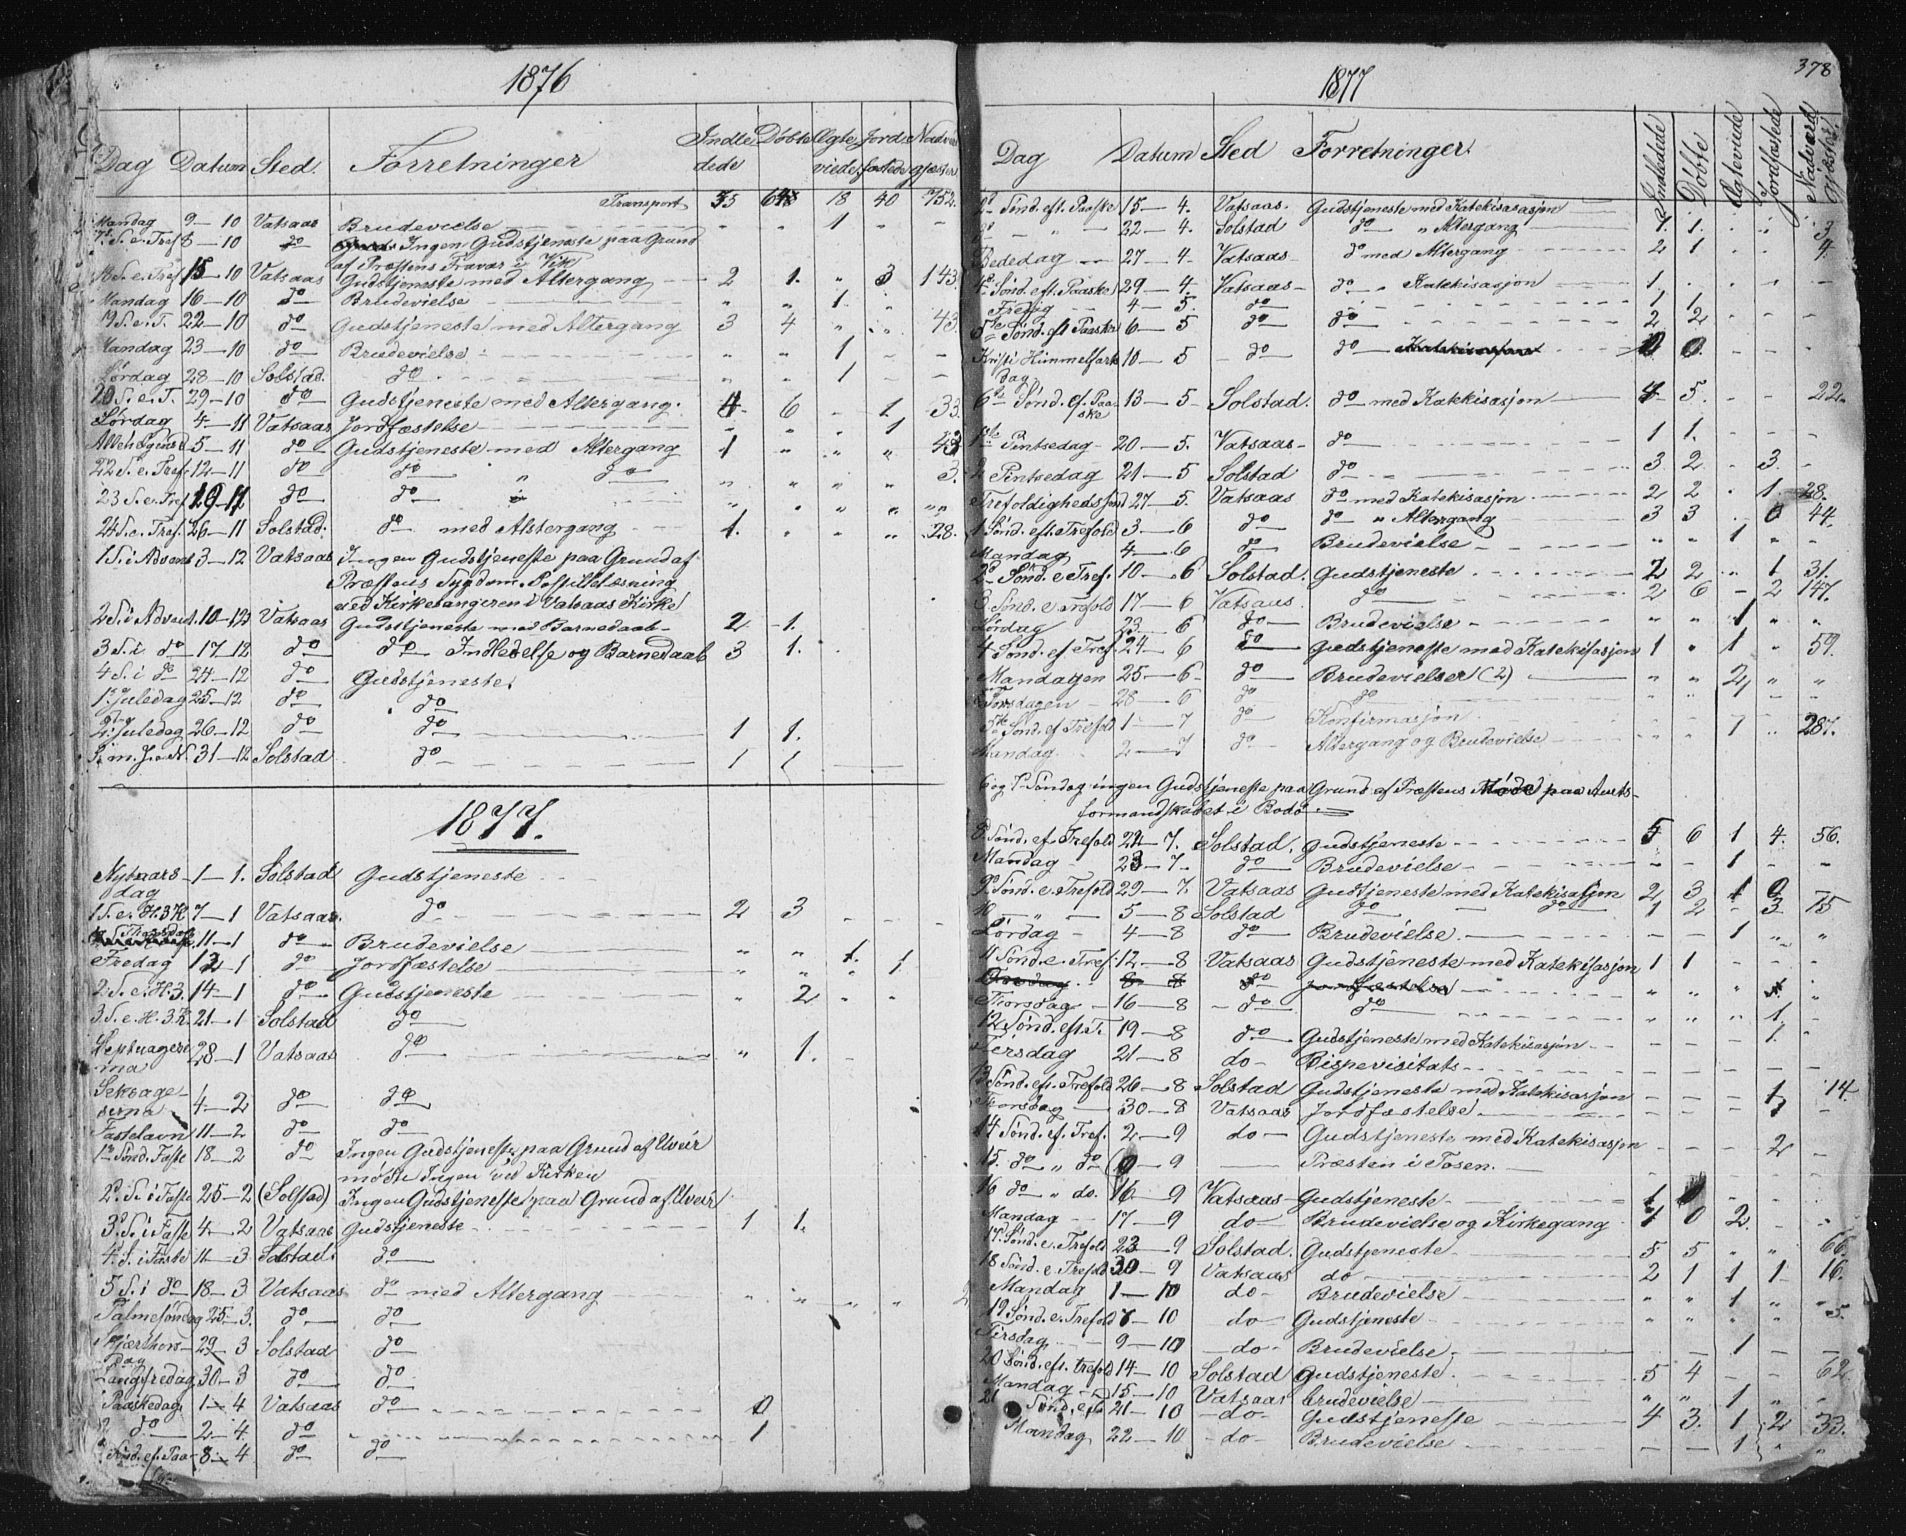 1876
Dag Datum Sted. Forretninger Indle dede Døbte Ægte viede Jordfæstede Nadverdgjæster
Transport 35 18 40 752.
Mandag 9-10 Vatsaas Brudevielse 1
8-10 do Ingen Gudstjeneste paa Grund
af Præstens Fravær i Vik
15-10 Vatsaas Gudstjeneste med Altergang 2 1. " 3 143.
Mandag 16-10 do Brudevielse " " 1
19 S. e. T. 22-10 do Gudstjeneste med Altergang 3 4 " " 43.
Mandag 23-10 do Brudevielse " " 1
Lørdag 28-10 Solstad. do " " 1
20 S. e. T. 29-10 do Gudstjeneste med Altergang. 4 6 - 1 33.
Lørdag 4-11 Vatsaas Jordfæstelse 1
5-11 do Gudstjeneste med Altergang 1 " " "
22 S. e. Tref. 12-11 do do " do " " " " 3.
23 S. e. Tref. 19-11 do do
24 S. e. Tref. 26-11 Solstad. do med Alstergang 1. " " " 28.
1 S. i Advent 3-12 Vatsaas Ingen Gudstjeneste paa Grund af
Præstens Sygdom. Postillelæsning
ved Kirkesangeren i Vatsaas Kirke
2 S. i Advent. 10-12 Vatsaas Gudstjeneste med Barnedaab 2 1.
3 S. i do 17-12 do do Indledelse og Barnedaab 3 1.
4 S. i do 24-12 do Gudstjeneste.
1. Juledag 25-12 do do
2. Juledag 26-12 do do 1 1.
S. m. J. o. N. 31-12 Solstad do 1 1
1877.
Nytaars- 1-1. Solstad Gudstjeneste
dag
1 S. e. H. 3 K. 7-1 Vatsaas. do 2 3
Thorsdag 11-1 do Brudevielse " " 1. 1
Fredag 12-1 do Jordfæstelse " " " 1
2 S. e. H. 3. 14-1 do Gudstjeneste " 2 " "
3. S. e. H. 3 K. 21-1 Solstad do
Septuagesi- 28-1 Vatsaas do " 1.
ma
Seksage- 4-2 do do
sima
Fastelavn 11-2 do do
1 Sønd. Faste 18-2 do Ingen Gudstjeneste paa Grund af Uveir
mødte Ingen ved Kirken
2. S. i Faste 25-2 (Solstad) Ingen Gudstjeneste paa Grund af Uveir
3. S. i Faste 4-2 Vatsaas Gudstjeneste 1 1.
4. S. i Faste 11-3 Solstad. do
5 S. i do 18-3 Vatsaas do med Altergang " " " "
Palmesøndag 25-3. do do
Skjærthors- 29-3 Solstad do
dag
Langfredag 30-3 do do
1 Paaskedag 1-4 Vatsaas do 0
2 do 2-4 do " 1
Sønd. ef. Paa- 8-4 do do
1877 378
Dag Datum Sted Forretninger. Indledede Døbte Ægteviede Jordfæstede Nadverdgjæster.
2. Sønd. eft. Paaske 15-4. Vatsaas. Gudstjeneste med Katekisasjon
22-4. Solstad do " Altergang 1. 1. " " 3
Bededag 27-4 Vatsaas do med Altergang 2 1 4.
4. Sønd. eft. Paaske 29-4. Vatsaas do " Katekisasjon 1.
Fredag 4-5. do 1 1.
5te Sønd. eft Paaske 6-5 do do 2 2
Kristi Himmelfarts 10-5 do do 0 0.
dag
6te Sønd. ef. Paa- 13-5 Solstad. do med Katekisasjon 4 5. 22.
ske
1ste Pintsedag 20-5. Vatsaas do 1 1.
2 Pintsedag 21-5 Solstad do 3 2 3.
Trefoldighedssønd 27-5. Vatsaas do med Katekisasjon 2 2 1. 28.
1 Sønd. eft. Trefold 3-6 do do " Altergang 3 3 0 44.
Mandag 4-6 do Brudevielse " " 1 "
2. Sønd. e. Tref. 10-6 Solstad. Gudstjeneste 2 2 " 1 31.
3 Sønd. e. Trefold 17-6 Vatsaas. do 2 6 - 2 147.
Lørdag 23-6 do Brudevielse " " 1 "
4 Sønd. ef. Tref. 24-6 do Gudstjeneste med Katekisasjon 1 " 1 " 59.
Mandagen 25-6 do Brudevielser (2) " " 2 " "
Torsdagen 28-6 do do
5te Sønd. ef Trefold 1-7 do Konfirmasjon
Mandag. 2-7 do Altergang og Brudevielse 1 287.
6 og 7. Søndag ingen Gudstjeneste paa Grund af Præstens Møde paa Amts-
formandskabet i Bodø.
8 Sønd. ef. Trefold 22-7. Solstad. Gudstjeneste 5 6 1 4. 56.
Mandag 23-7. do Brudevielse 1
9. Sønd. e. Trefold 29-7. Vatsaas Gudstjeneste med Katekisasjon 2 3 1 0
10 5-8 Solstad do do 1 2 3 75
Lørdag 4-8 do Brudevielse. 1 " "
11 Sønd. e. Tref. 12-8 Vatsaas Gudstjeneste med Katekisasjon 1 1
Torsdag 16-8 do do 1.
12 Sønd. eft. T. 19-8 do Gudstjeneste med Katekisasjon 1.
Tirsdag 21-8 do Bispevisitats
13 Sønd. ef. Trefold 26-8 Solstad Gudstjeneste med Katekisasjon 1 14.
Thorsdag 30-8 Vatsaas Jordfæstelse 1
14 Sønd. ef. Tref. 2-9 do Gudstjeneste med Katekisasjon 2
15. do " do 9-9 Præsten i Tosen.
16 do " do. 16-9 Vatsaas Gudstjeneste 1
Mandag 17-9 do Brudevielse og Kirkegang 1 0 2.
17. Sønd. e. Trefold 23-9 Solstad. Gudstjeneste 5 5 " " 66.
18 Sønd. e. Trefold 30-9 Vatsaas do 2 1 1 1 16.
Mandag 1-10 do Brudevielse " " 1 "
19 Sønd. e. Trefold 7-10 do Gudstjeneste " " " " 5.
Tirsdag 9-10 do Brudevielse. 1
20 Sønd. eft. trefold 14-10 Solstad Gudstjeneste. 5 4 62
Mandag 15-10 Vatsaas brudevielse " " 1
21 Sønd. e. 21-10 do Gudstjeneste 4 3. 1 2 33.
Mandag 22-10 do Brudevielse 1 "